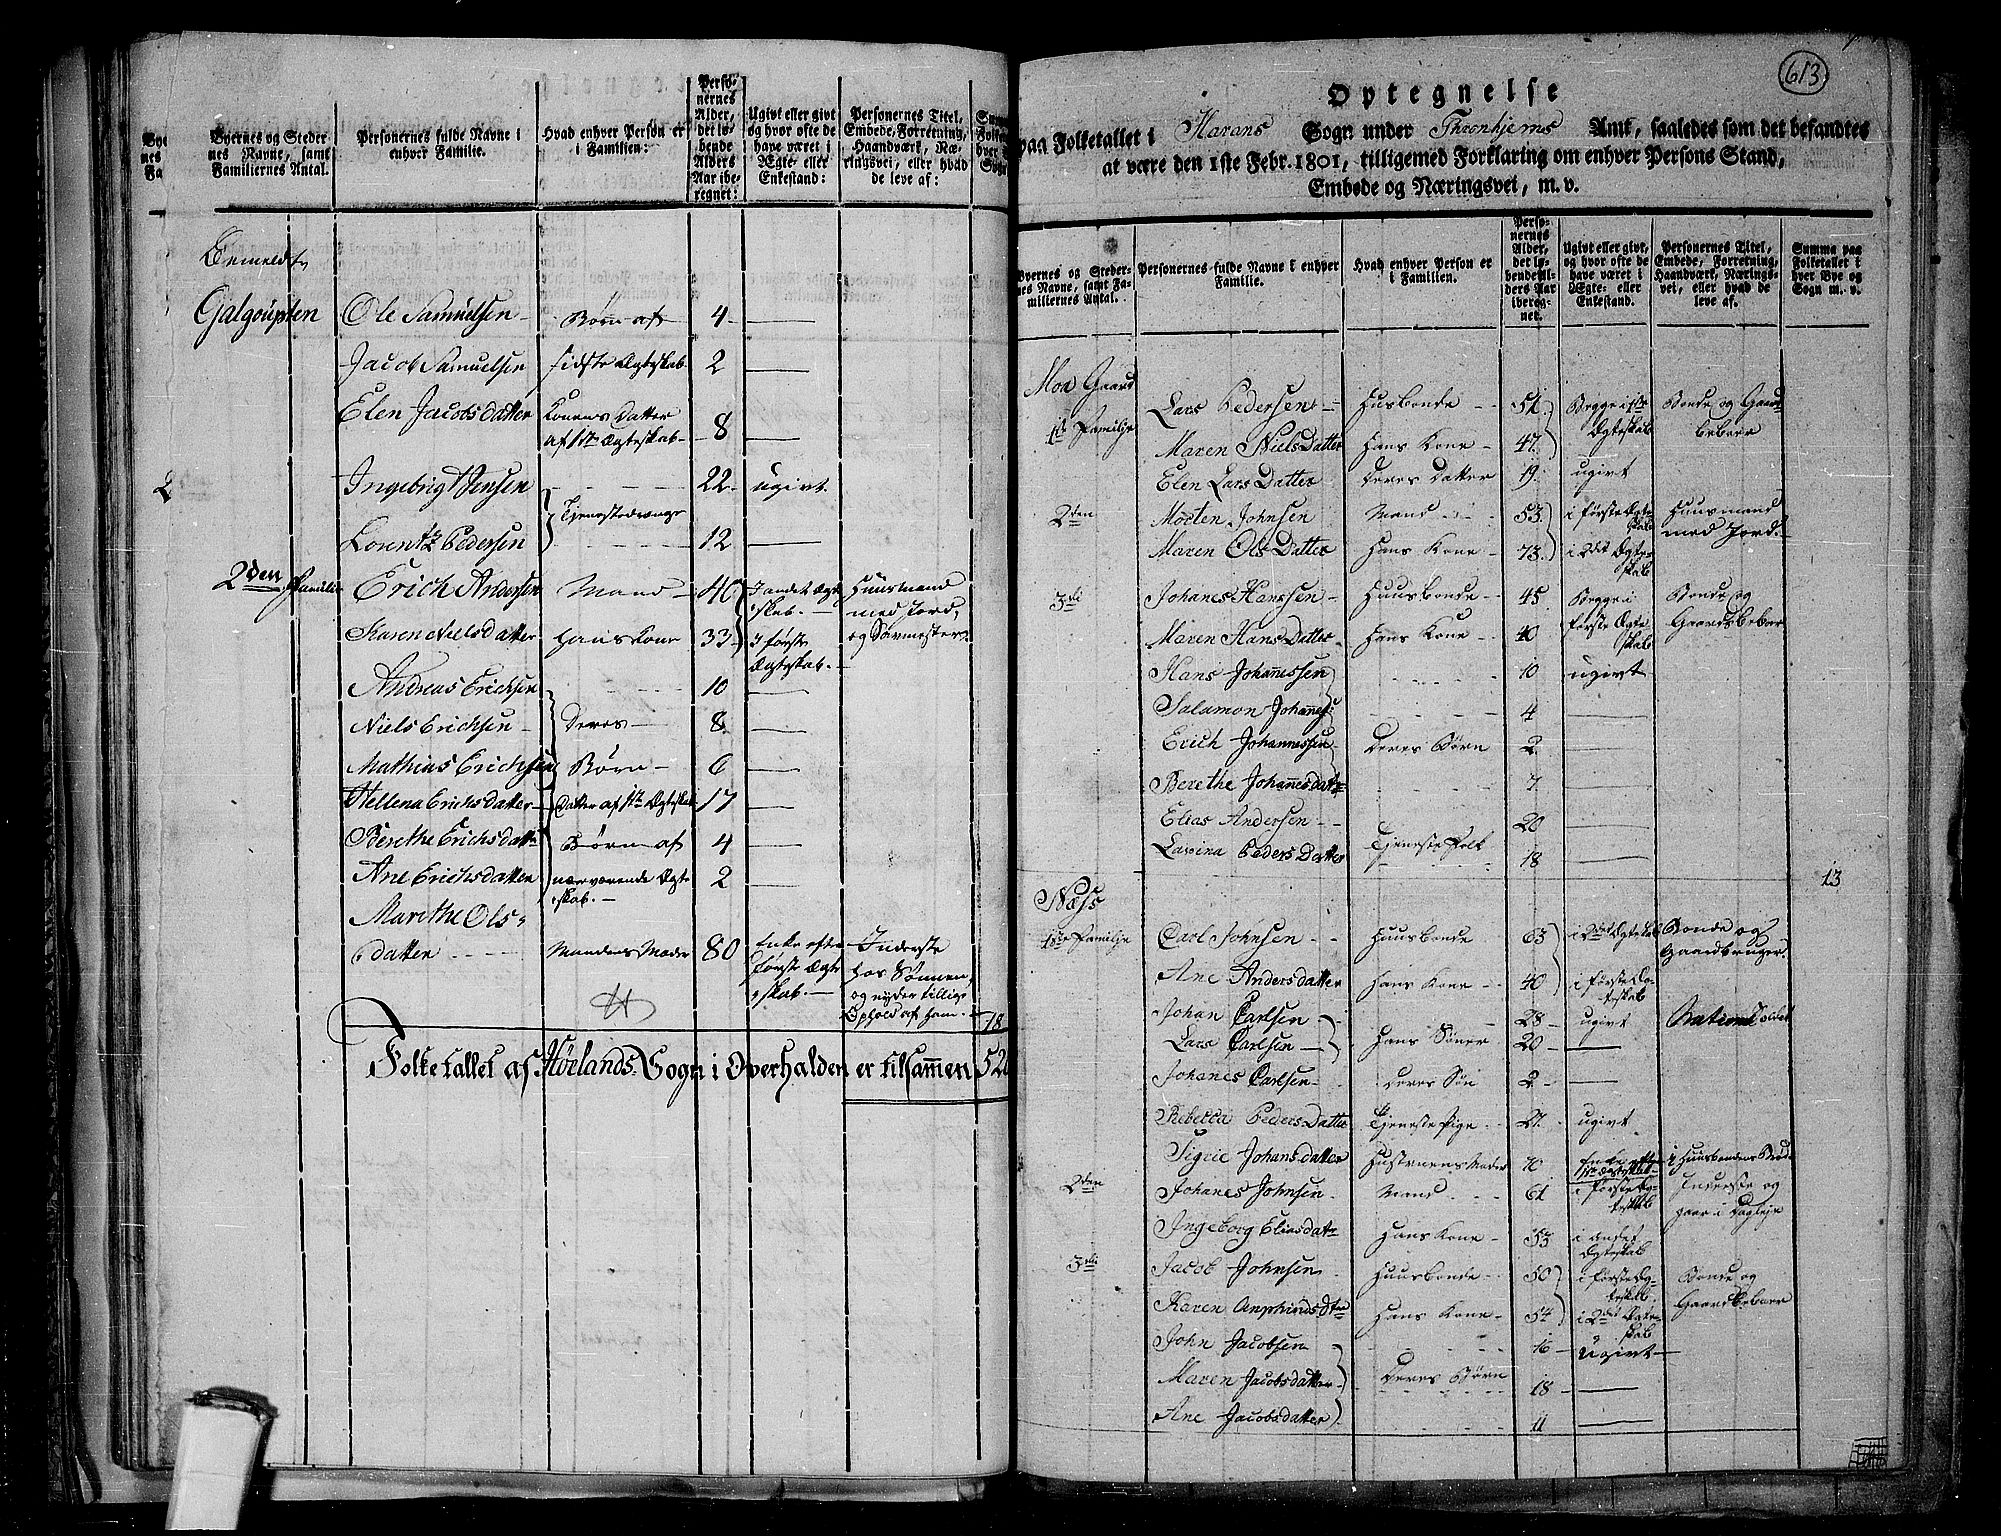 613
Byernes og Steder-
nes Navne, samt
Familiernes Antal.
Personernes fulde Navne i
enhver Familie.
Hvad enhver Person er
i Familien:
Perso-
nernes
Alder,
det lø-
bende
Alders
Aar ibe-
regnet:
Ugivt eller givt
og hvor ofte de
have været i
Ægte- eller
Enkestand:
Personernes Titel,
Embede, Forretning,
Haandværk, Næ-
ringsvei, eller hvad
de leve af:
Bemeldte
Galgoupten Ole Samuelsen - Børn af 4 -
Jacob Samuelsen sidste Ægteskab 2 -
Elen Jacobsdatter Konens Datter
af 1te Ægteskab - 8 -
Ingebrigt Jensen 22 ugivt
Tjenestedrenge
Lorentz Pedersen 12 -
2den Familie Erich Andersen Mand - 40 I andet Ægte- Huusmand
skab. - med Jord,
Karen Nielsdatter hans Kone 33 I første og Søvmester.
Ægteskab. -
Andreas Erichsen 10 -
Niels Erichsen - Deres - 8 -
Mathias Erichsen Børn - 6 -
Hellena Erichsdatter - Datter af 1te Ægteskab 17 -
Berethe Erichsdatter Børn af 4 -
Ane Erichsdatter nærværende Ægte- 2 -
skab. -
Marithe Ols-
datter Mandens Moder 80 Enke efter Inderste
første Ægte- hos Sønnen,
skab. - og nyder tillige
Ophold af ham. - 18
Folketallet af Hørlands Sogn i Overhalden er tilsammen 520
Optegnelse
paa Folketallet i Harans Sogn under Thronhjems Amt, saaledes som det befandtes
at være den 1ste Febr. 1801, tilligemed Forklaring om enhver Persons Stand,
Embede og Næringsvei, m. v.
Byernes og Steder-
nes Navne, samt Fa-
miliernes Antal.
Personernes fulde Navne i enhver
Familie.
Hvad enhver Person er
i Familien.
Perso-
nernes
Alder,
det lø-
bende Al-
ders Aar
ibereg-
net.
Ugivt eller givt,
og hvor ofte de
have været i
Ægte- eller
Enkestand.
Personernes Titel,
Embede, Forretning,
Haandværk, Nærings-
vei, eller hvad de
leve af.
Summa paa
Folketallet i
hver Bye og
Sogn m. v.
Moa Gaard
1te Familje Lars Pedersen - Husbonde - - 51 Begge i 1ste Bonde og Gaard-
Ægteskab beboer
Maren NielsDatter Hans Kone - 47
Elen LarsDatter Deres Datter 19 ugivt
2den Morten Johnsen Mand 53 i første Ægte- Huusmand
skab med Jord.
Maren OlsDatter Hans Kone - 73 i 2det Ægte-
skab
3die Johanes Hanssen - Huusbonde - 45 Begge i Bonde og
første Ægte- Gaardbeboer
skab
Maren HansDatter Hans Kone - 40
Hans Johannessen 10 ugivt
Salamon Johannes: 4 -
Erich Johannessen Deres Børn 2 -
Berethe Johannesdatter 7 -
Elias Andersen - - 20 -
Tjeneste Folk
Lavina PedersDatter 18 -
13
Næss
1ste Familje Carl Johnsen - - Huusbonde 63 i 2det Ægteskab Bonde og
Gaardbruger.
Ane Andersdatter Hans Kone - 40 i første Æg-
teskab
Johan Carlsen - 28 - ugivt National Soldat
Lars Carlsen - Hans Sønner 20 -
Johanes Carlsen - Deres Søn 2 -
Rebecca PedersDatter Tjeneste Pige - - 27 ugivt
Sigrie Johansdatter Hustruens Moder 70 Enke efter i Huusbondens Brød
1te Ægteskab
2den Johanes Johnsen - Mand 61 i første Æg- Inderste og
teskab gaar i Dagleje
Ingeborg Eliasdatr Hans Kone - - 53 i andet
Ægteskab
3die Jacob Johnsen Huusbonde - - 50 i første Æg- Bonde og
teskab Gaardbeboer
Karen Amphindsdtr Hans Kone - 54 i 2det Ægte-
skab
John Jacobsen 16 - ugivt -
Maren Jacobsdatter - Deres Børn 18 -
Ane Jacobsdatter 11 -